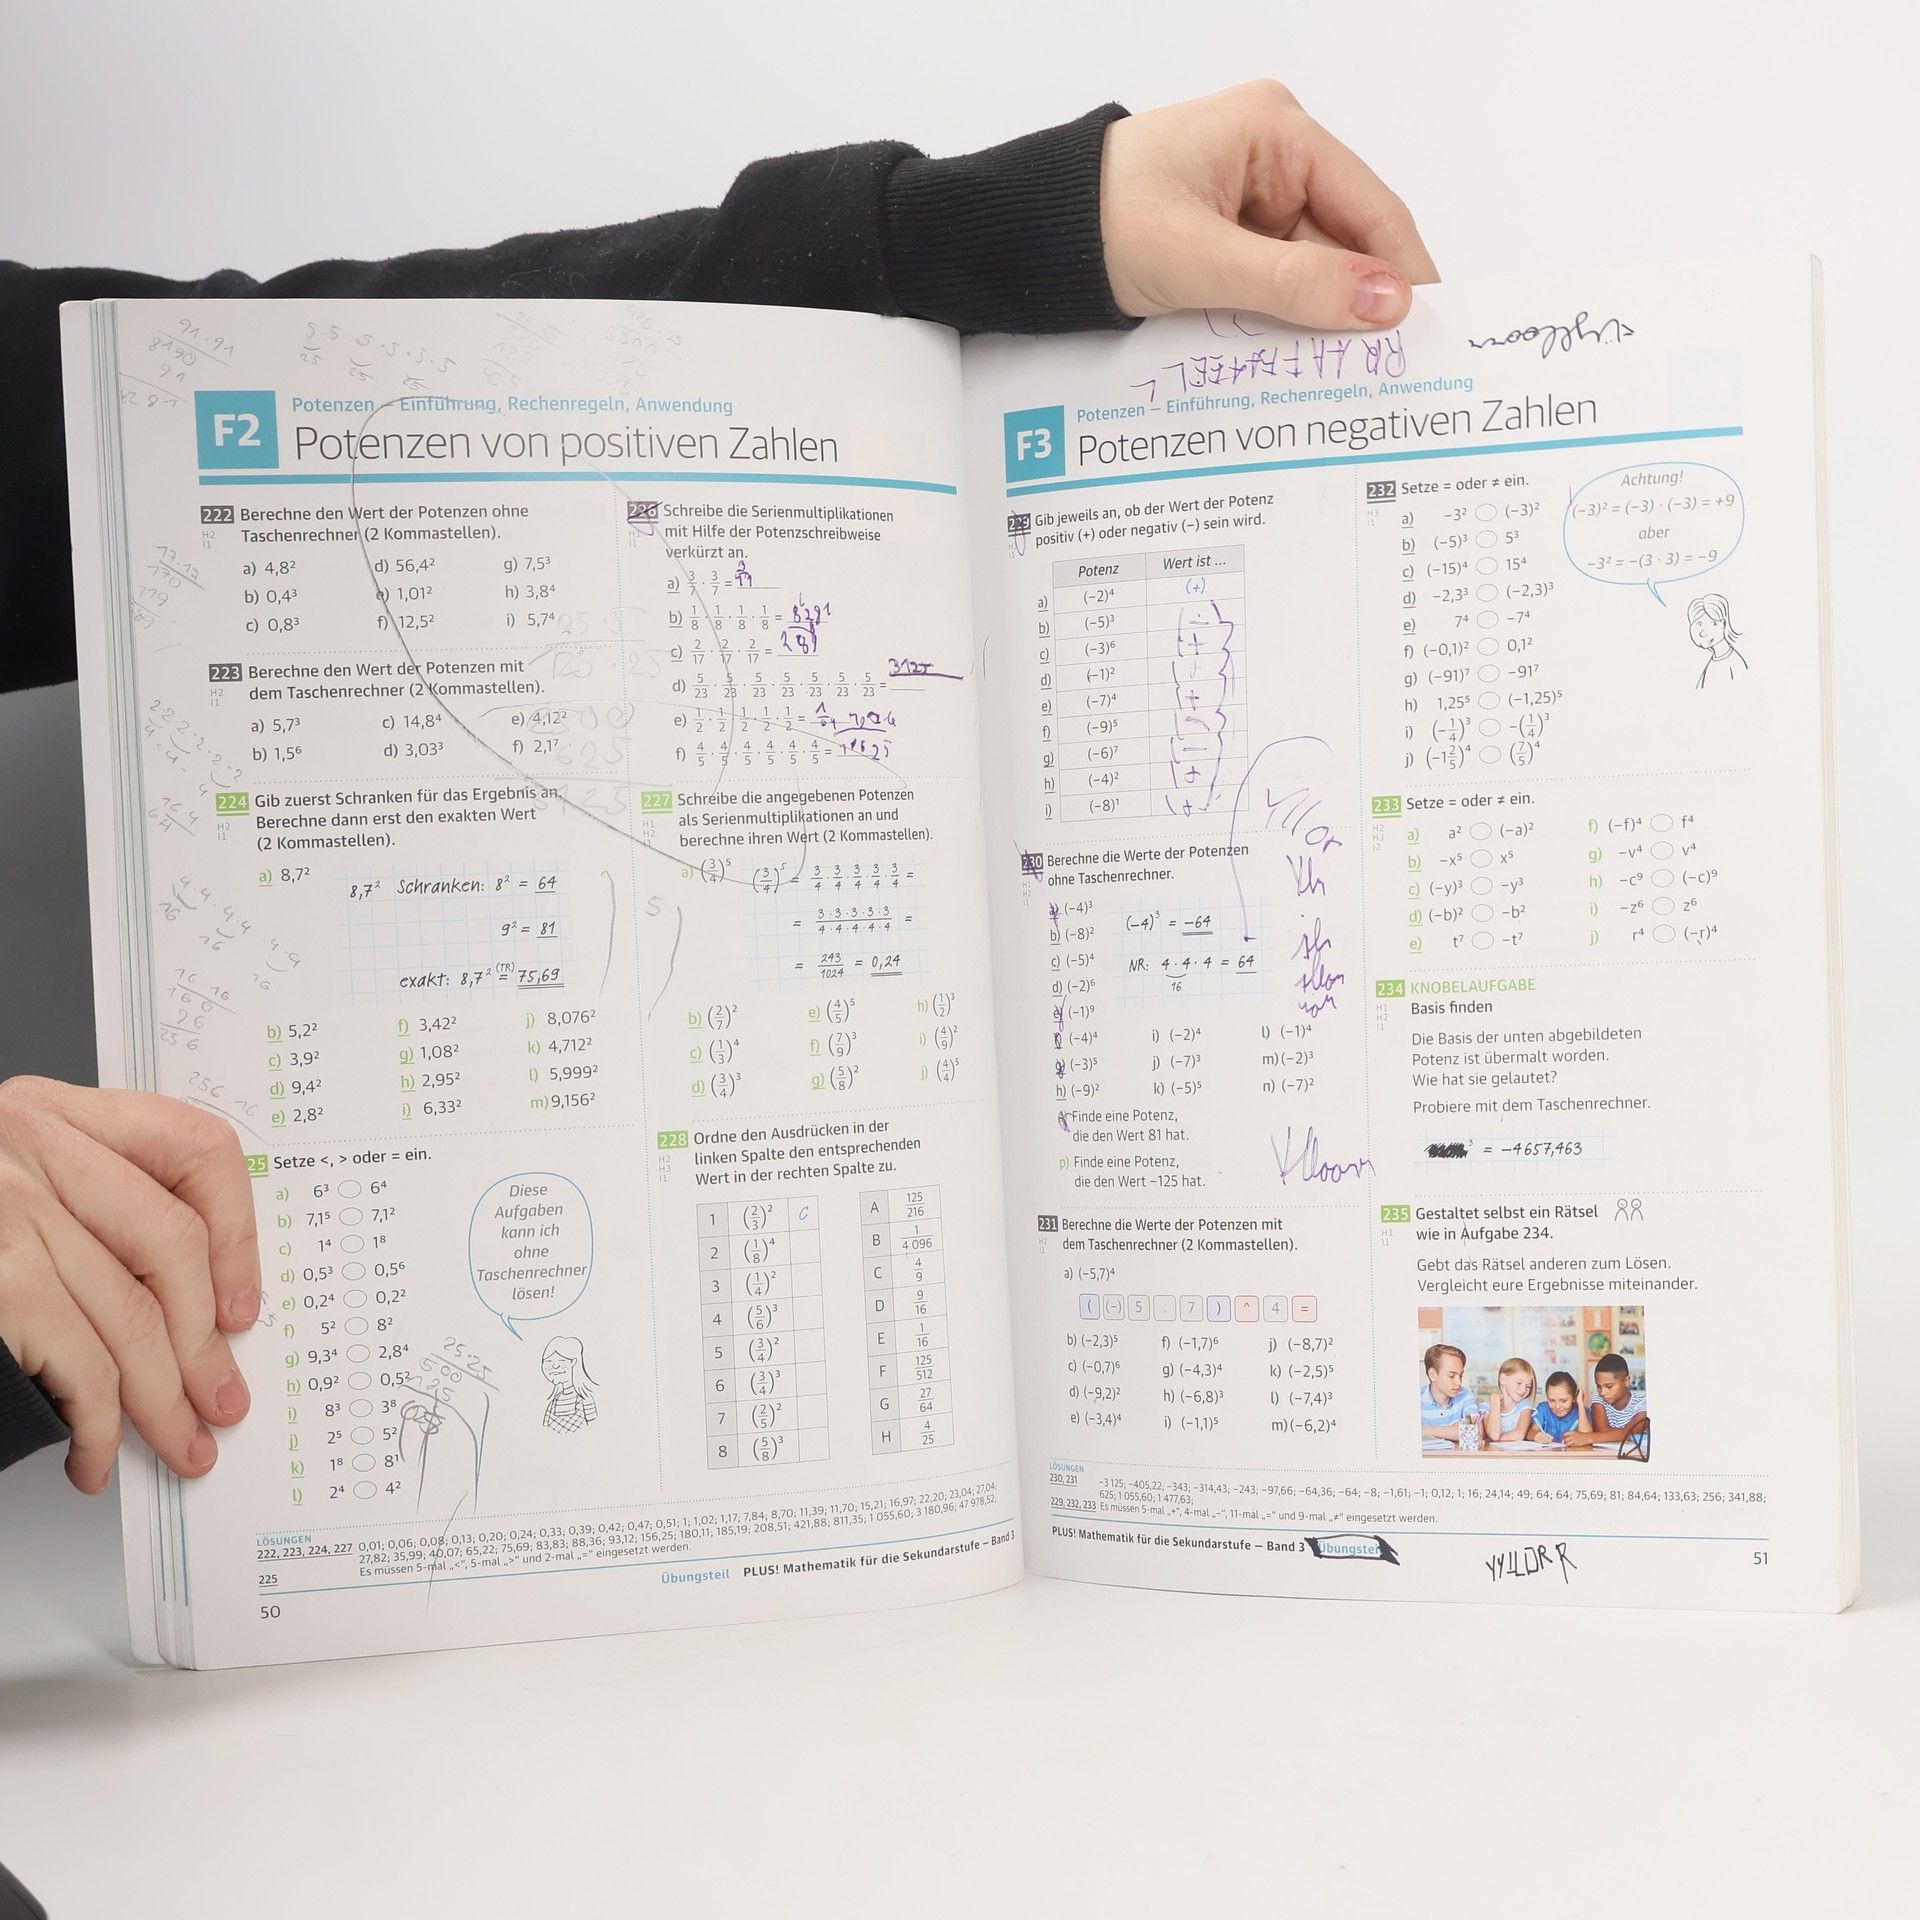 F2
Potenzen – Einführung, Rechenregeln, Anwendung
Potenzen von positiven Zahlen
222 Berechne den Wert der Potenzen ohne
Taschenrechner (2 Kommastellen).
H2
I1
a) 4,8² d) 56,4² g) 7,5³
b) 0,4³ e) 1,01² h) 3,8⁴
c) 0,8³ f) 12,5² i) 5,7⁴
223 Berechne den Wert der Potenzen mit
dem Taschenrechner (2 Kommastellen).
H2
I1
a) 5,7³ c) 14,8⁴ e) 4,12²
b) 1,5⁶ d) 3,03³ f) 2,1⁷
224 Gib zuerst Schranken für das Ergebnis an.
Berechne dann erst den exakten Wert
(2 Kommastellen).
H2
I1
a) 8,7²
8,7² Schranken: 8² = 64
9² = 81
exakt: 8,7² (TR)= 75,69
b) 5,2² f) 3,42² j) 8,076²
c) 3,9² g) 1,08² k) 4,712²
d) 9,4² h) 2,95² l) 5,999²
e) 2,8² i) 6,33² m) 9,156²
25 Setze <, > oder = ein.
a) 6³ 6⁴
b) 7,1⁵ 7,1²
c) 1⁴ 1⁸
d) 0,5³ 0,5⁶
e) 0,2⁴ 0,2²
f) 5² 8²
g) 9,3⁴ 2,8⁴
h) 0,9² 0,5²
i) 8³ 3⁸
j) 2⁵ 5²
k) 1⁸ 8¹
l) 2⁴ 4²
Diese
Aufgaben
kann ich
ohne
Taschenrechner
lösen!
226 Schreibe die Serienmultiplikationen
mit Hilfe der Potenzschreibweise
verkürzt an.
a) 3/7 · 3/7 =
b) 1/8 · 1/8 · 1/8 · 1/8 = 8281
c) 2/17 · 2/17 · 2/17 = 289
d) 5/23 · 5/23 · 5/23 · 5/23 · 5/23 · 5/23 · 5/23 · 5/23 = 3125
e) 1/2 · 1/2 · 1/2 · 1/2 · 1/2 =
f) 4/5 · 4/5 · 4/5 · 4/5 · 4/5 · 4/5 =
227 Schreibe die angegebenen Potenzen
als Serienmultiplikationen an und
berechne ihren Wert (2 Kommastellen).
H1
H2
I1
a) (3/4)⁵ (3/4)⁵ = 3/4 · 3/4 · 3/4 · 3/4 · 3/4 =
= 3·3·3·3·3 / 4·4·4·4·4 =
= 243/1024 = 0,24
b) (2/7)² e) (4/5)⁵ h) (1/2)³
c) (1/3)⁴ f) (7/9)³ i) (4/9)²
d) (3/4)³ g) (5/8)² j) (4/4)⁵
228 Ordne den Ausdrücken in der
linken Spalte den entsprechenden
Wert in der rechten Spalte zu.
H2
H3
I1
1 (2/3)² C A 125/216
2 (1/8)⁴ B 1/4 096
3 (1/4)² C 4/9
4 (5/6)³ D 9/16
5 (3/4)² E 1/16
6 (3/4)³ F 125/512
7 (2/5)² G 27/64
8 (5/8)³ H 4/25
LÖSUNGEN
222, 223, 224, 227 0,01; 0,06; 0,08; 0,13; 0,20; 0,24; 0,33; 0,39; 0,42; 0,47; 0,51; 1; 1,02; 1,17; 7,84; 8,70; 11,39; 11,70; 15,21; 16,97; 22,20; 23,04; 27,04;
27,82; 35,99; 40,07; 65,22; 75,69; 83,83; 88,36; 93,12; 156,25; 180,11; 185,19; 208,51; 421,88; 811,35; 1 055,60; 3 180,96; 47 978,52;
225 Es müssen 5-mal „<“, 5-mal „>“ und 2-mal „=“ eingesetzt werden.
Übungsteil PLUS! Mathematik für die Sekundarstufe – Band 3
50
F3
Potenzen – Einführung, Rechenregeln, Anwendung
Potenzen von negativen Zahlen
229 Gib jeweils an, ob der Wert der Potenz
positiv (+) oder negativ (−) sein wird.
Potenz Wert ist ...
a) (−2)⁴ (+)
b) (−5)³ (−)
c) (−3)⁶ (+)
d) (−1)² (+)
e) (−7)⁴ (+)
f) (−9)⁵ (−)
g) (−6)⁷ (−)
h) (−4)² (+)
i) (−8)¹ (+)
230 Berechne die Werte der Potenzen
ohne Taschenrechner.
a) (−4)³ (−4)³ = −64
b) (−8)²
c) (−5)⁴ NR: 4 · 4 · 4 = 64
16
d) (−2)⁶
e) (−1)⁹
f) (−4)⁴ i) (−2)⁴ l) (−1)⁴
g) (−3)⁵ j) (−7)³ m) (−2)³
h) (−9)² k) (−5)⁵ n) (−7)²
Finde eine Potenz,
die den Wert 81 hat.
p) Finde eine Potenz,
die den Wert −125 hat.
231 Berechne die Werte der Potenzen mit
dem Taschenrechner (2 Kommastellen).
H2
I1
a) (−5,7)⁴
( (−) 5 . 7 ) ^ 4 =
b) (−2,3)⁵ f) (−1,7)⁶ j) (−8,7)²
c) (−0,7)⁶ g) (−4,3)⁴ k) (−2,5)⁵
d) (−9,2)² h) (−6,8)³ l) (−7,4)³
e) (−3,4)⁴ i) (−1,1)⁵ m) (−6,2)⁴
232 Setze = oder ≠ ein.
H3
I1
a) −3² (−3)²
b) (−5)³ 5³
c) (−15)⁴ 15⁴
d) −2,3³ (−2,3)³
e) 7⁴ −7⁴
f) (−0,1)² 0,1²
g) (−91)⁷ −91⁷
h) 1,25⁵ (−1,25)⁵
i) (−1/4)³ −(1/4)³
j) (−1 2/5)⁴ (7/5)⁴
Achtung!
(−3)² = (−3) · (−3) = +9
aber
−3² = −(3 · 3) = −9
233 Setze = oder ≠ ein.
H2
H3
I2
a) a² (−a)² f) (−f)⁴ f⁴
b) −x⁵ x⁵ g) −v⁴ v⁴
c) (−y)³ −y³ h) −c⁹ (−c)⁹
d) (−b)² −b² i) −z⁶ z⁶
e) t⁷ −t⁷ j) r⁴ (−r)⁴
234 KNOBELAUFGABE
Basis finden
H1
H2
I1
Die Basis der unten abgebildeten
Potenz ist übermalt worden.
Wie hat sie gelautet?
Probiere mit dem Taschenrechner.
³ = −4657,463
235 Gestaltet selbst ein Rätsel
wie in Aufgabe 234.
H1
I1
Gebt das Rätsel anderen zum Lösen.
Vergleicht eure Ergebnisse miteinander.
LÖSUNGEN
230, 231 −3 125; −405,22; −343; −314,43; −243; −97,66; −64,36; −64; −8; −1,61; −1; 0,12; 1; 16; 24,14; 49; 64; 64; 75,69; 81; 84,64; 133,63; 256; 341,88;
625; 1 055,60; 1 477,63;
229, 232, 233 Es müssen 5-mal „+“, 4-mal „−“, 11-mal „=“ und 9-mal „≠“ eingesetzt werden.
PLUS! Mathematik für die Sekundarstufe – Band 3 Übungsteil
51